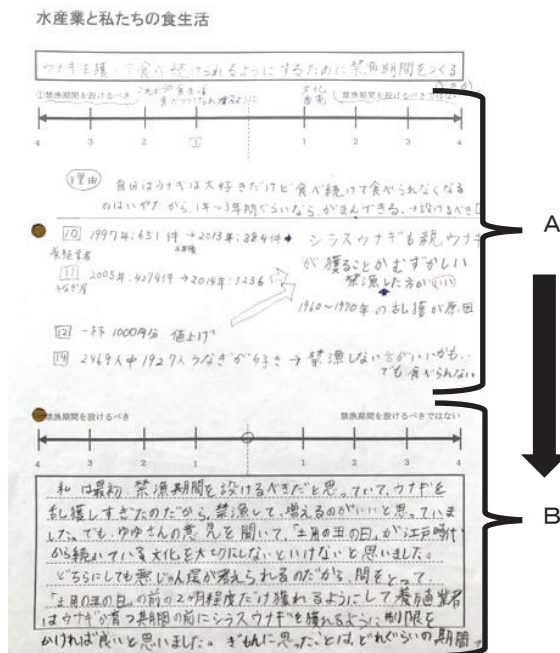 水産業と私たちの食生活
ウナギを獲って食べ続けられるようにするために禁漁期間をつくる
①禁漁期間を設けるべき これからの食生活 食べつづけられ増えるように
文化 禁漁期間を設けるべきではない
4 3 2 1 1 2 3 4
理由 自日はウナギは大好きだけど食べ続けて食べられなくなる
のはいやだから、1年〜3年間ぐらいなら、がまんできる。→設けるべき
10 1997年:651件→2013年:384件
養殖業者
シラスウナギも親ウナギ
が獲ることがむずかしい
11 2005年:42741件→2014年:3236
うなぎ屋
禁漁した方がいい
1960〜1970年の乱獲が原因
12 一杯1000円分 値上げ
14 2469人中1927人うなぎが好き→禁漁しない方がいいかも。
でも食べられない
A
禁漁期間を設けるべき 禁漁期間を設けるべきではない
4 3 2 1 1 2 3 4
私は最初禁漁期間を設けるべきだと思っていて、ウナギを
乱獲しすぎたのだから、禁漁して、増えるのがいいと思っていま
した。でも、ゆゆさんの意見を聞いて、「土用の丑の日」が江戸時代
から続いている文化を大切にしないといけないと思いました。
どちらにしても悪じゅん環が考えられるのだから、間をとって、
「土用の丑の日」の前の2ヶ月程度だけ獲れるようにして養殖業者
はウナギが育つ期間の前にシラスウナギを獲れるように制限を
かければ良いと思いました。ぎもんに思ったことは、どれぐらいの期間
B